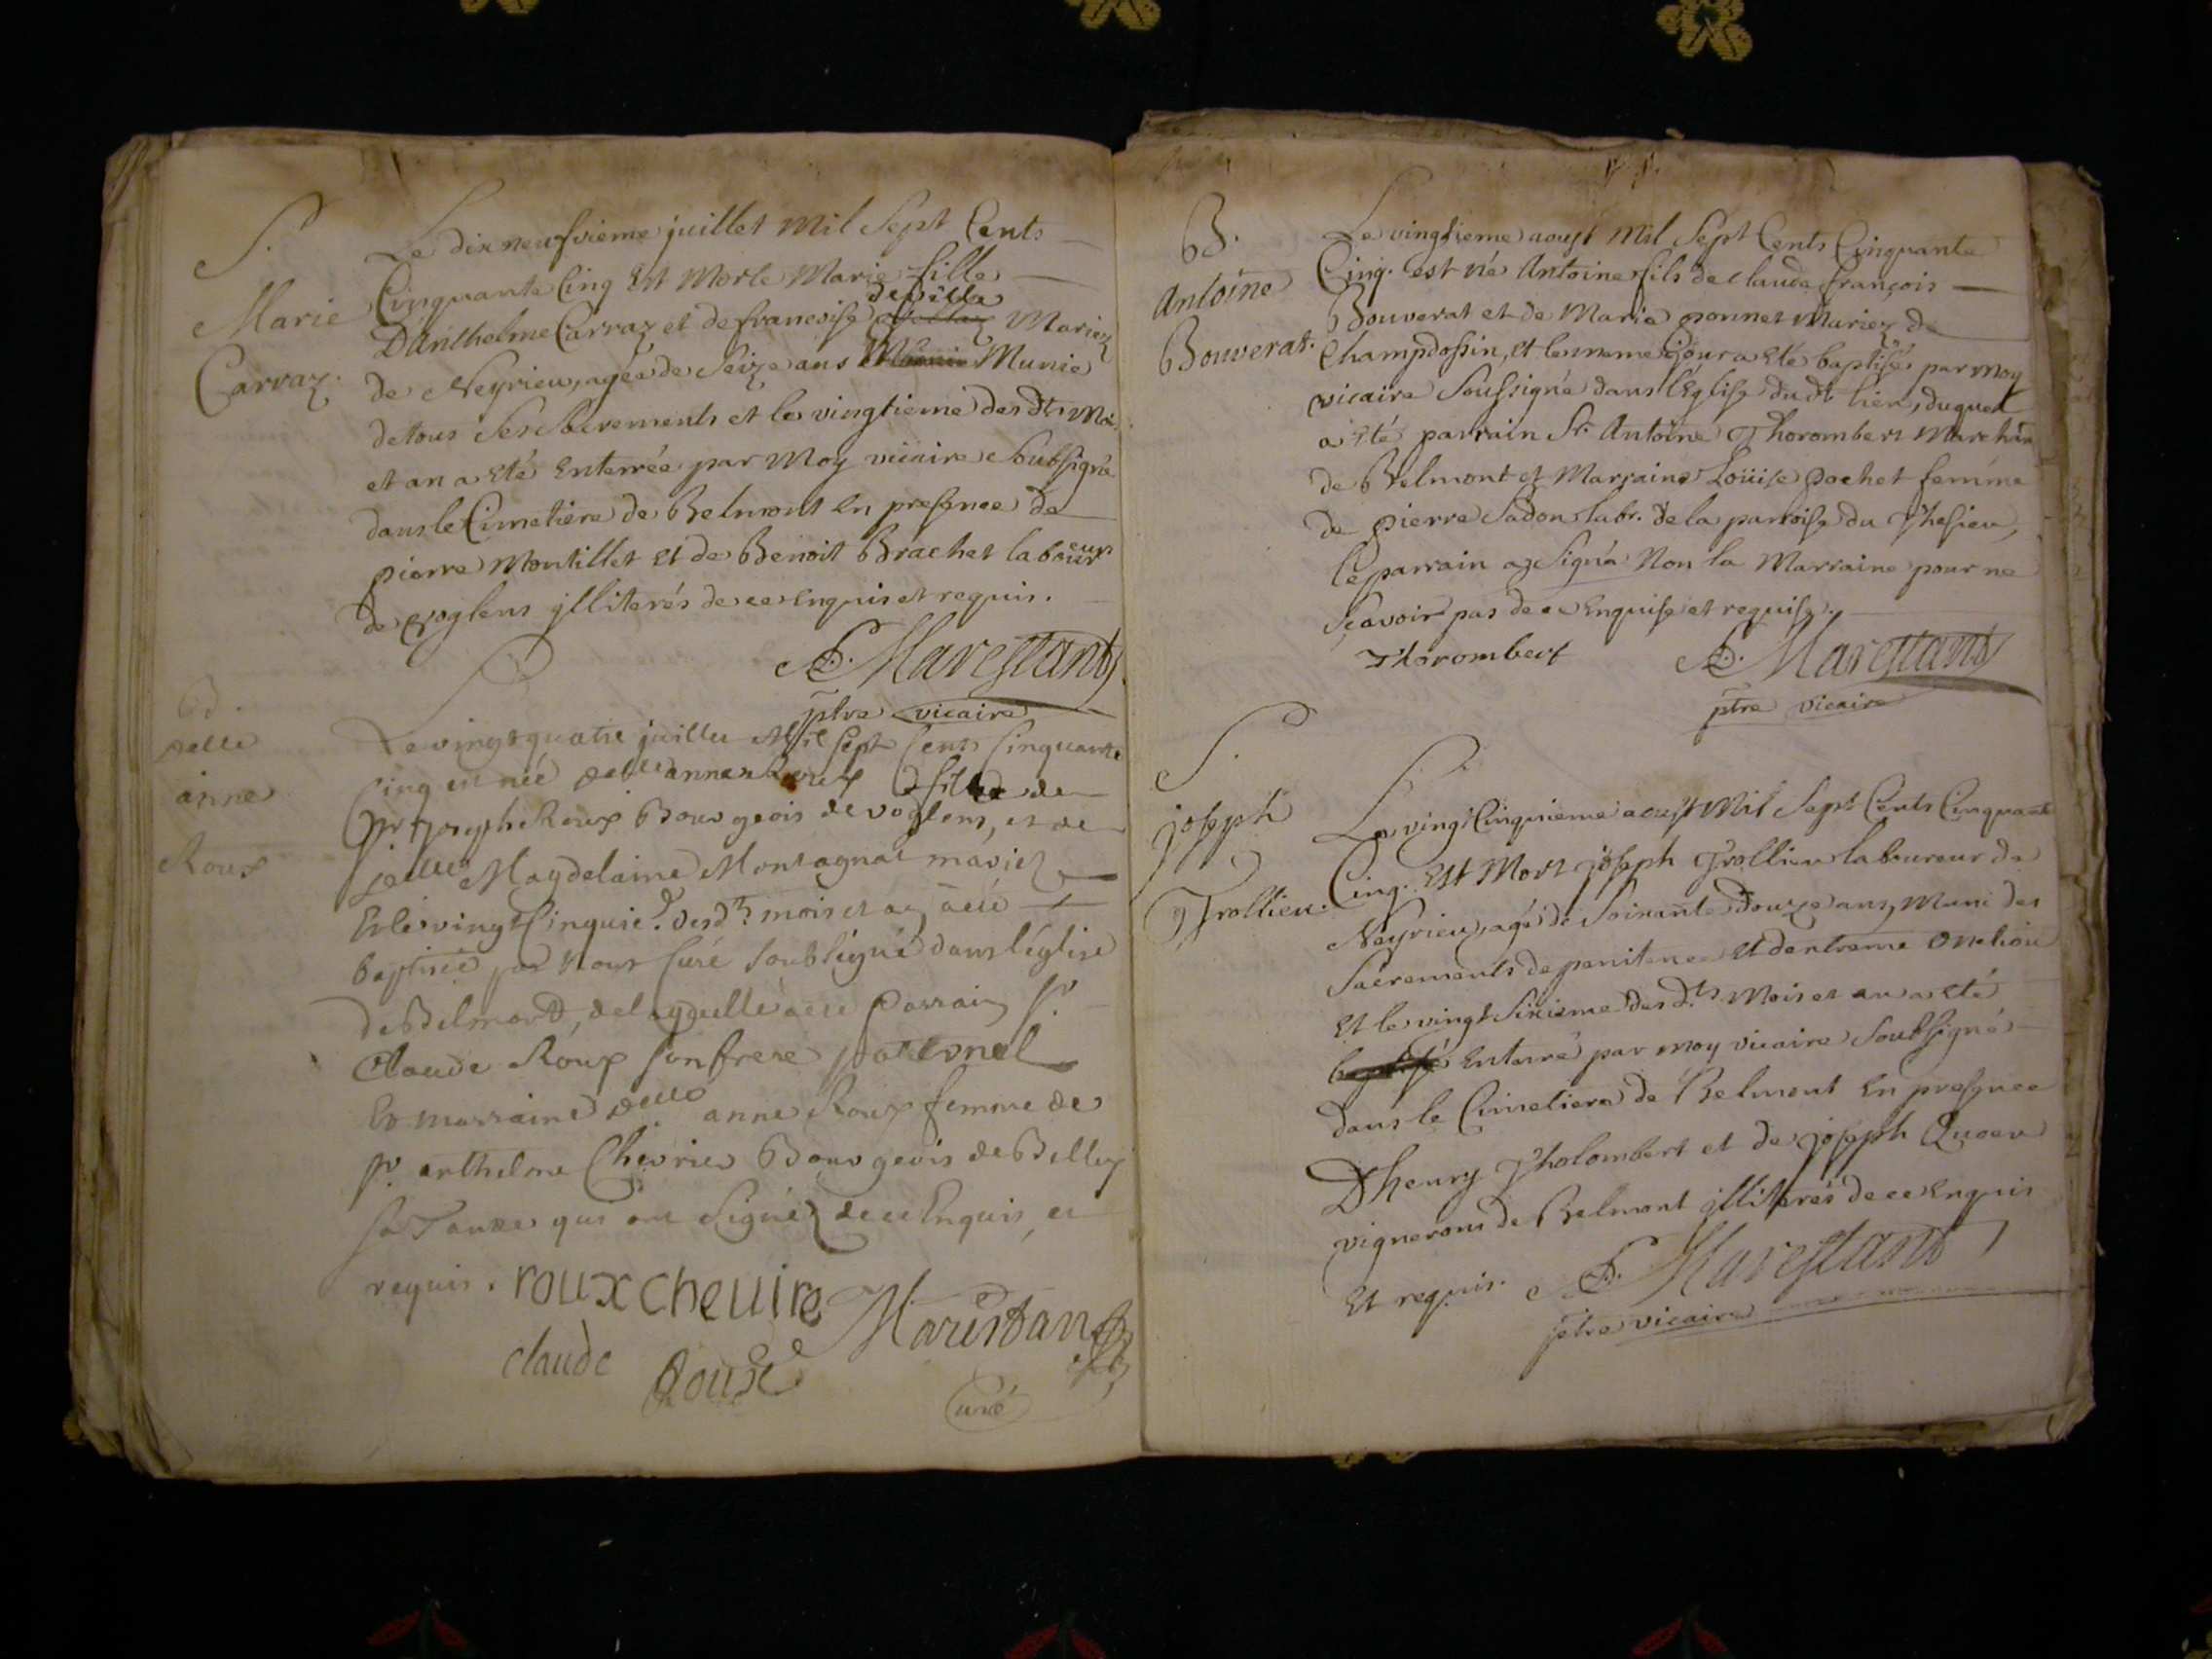 S.
Marie
Carraz.
Le dix neufvieme juillet Mil Sept Cents
Cinquante Cinq Est Morte Marie fille
deville
D'Anthelme Carraz et de francoise Mariez
de Neyrieu, agée de Seize ans Munie
de tous Ses Sacrements et le vingtieme des dts Moi
et an a Eté Enterrée par Moy vicaire Soubsigné
dans le Cimetiere de Belmont En presence de
pierre Montillet Et de Benoit Brachet laboureurs
de voglens jlliterés de ce Enquis et requis.
Marestant
ptre vicaire
B.
delle
anne
Roux
Le vingt quatre juillet Mil Sept Cents Cinquante
Cinq est née delle anne Roux fille de
Sr. joseph Roux Bourgeois de voglens, et de
delle Magdelaine Montagnat mariez
Et le vingt Cinquie. des dts mois et an a eté
baptisée par Nous Curé Soubsigné dans l'église
de Belmont, de laquelle a eté Parrain Sr.
Claude Roux son frere paternel
Et marraine delle anne Roux femme de
Sr. anthelme Chevrier Bourgeois de Belley
sa Tante qui ont Signéz de ce Enquis, et
requis. roux cheuire
Marestan
claude Roux
Curé
B.
Antoine
Bouverat.
Le vingtieme aoust Mil Sept Cents Cinquante
Cinq. est né Antoine fils de Claude françois
Bouverat et de Marie ponnet Mariez de
Champdossin, et le meme jour a eté baptisé par Moy
vicaire Soussigné dans l'Eglise du dt lieu, duquel
a eté parrain Sr. Antoine Thorombert Marchan
de Belmont et Marraine Loüise pochet femme
de pierre Sadon labr. de la parroise du Thesieu,
le parrain a Signé Non la Marraine pour ne
Sçavoir pas de ce Enquise et requise.
Thorombert
Marestant
ptre vicaire
S.
joseph
Trollieu.
Le vingt Cinquieme aoust Mil Sept Cents Cinquante
Cinq. Est Mort joseph Trollieu laboureur de
Neyrieu, agé de Soixante douze ans, Muni des
Sacrements de penitence Et d'extreme Onction
Et le vingt Sixieme des dts Mois et an a eté
Enterré par moy vicaire Soubsigné
dans le Cimetiere de Belmont En presence
D'henry Tholombert et de joseph
vignerons de Belmont jlliterés de ce Enquis
Et requis.
Marestant
ptre vicaire